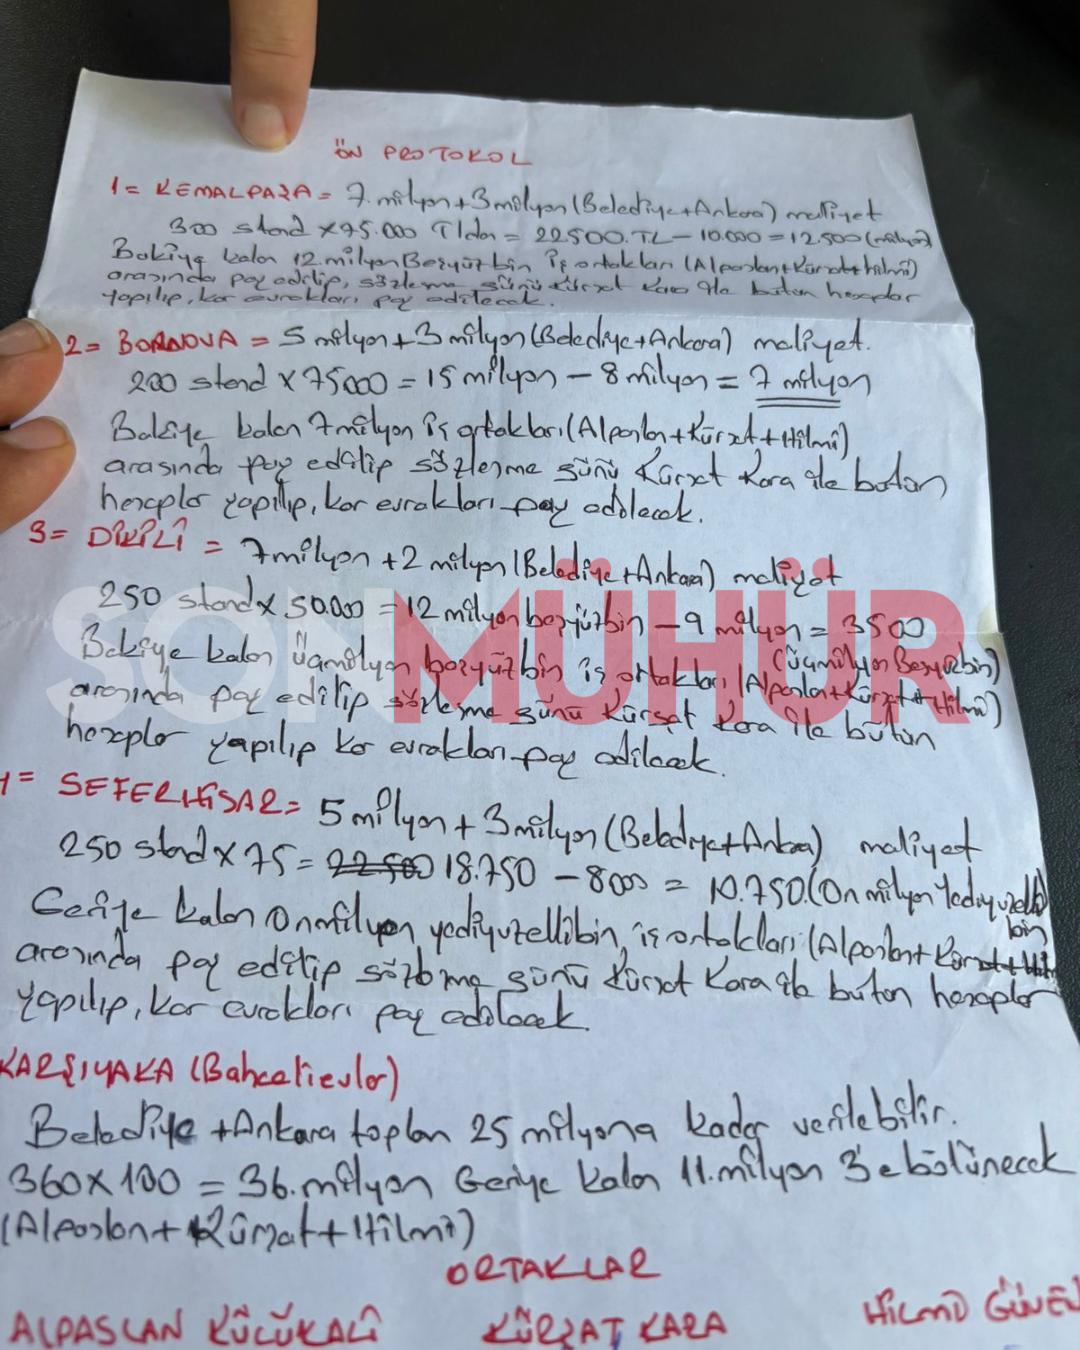 ÖN PROTOKOL
1= KEMALPAŞA = 7.milyon+3milyon(Belediye+Ankara) maliyet
300 stand x75.000 Tlden = 22.500.TL-10.000=12.500(milyon)
Bakiye kalan 12.milyonBeşyüzbin iş ortakları (Alpaslan+Kürşat+Hilmi)
arasında pay edilip, sözleşme günü Kürşat Kara ile bütün hesaplar
yapılıp, kar evrakları pay edilecek.
2= BORNOVA = 5 milyon+3 milyon(Belediye+Ankara) maliyet.
200 stand x 75000 = 15 milyon - 8 milyon = 7 milyon
Bakiye kalan 7milyon iş ortakları(Alpaslan+Kürşat+Hilmi)
arasında pay edilip sözleşme günü Kürşat Kara ile bütün
hesaplar yapılıp, kar evrakları pay edilecek.
3= DİKİLİ = 7milyon +2 milyon(Belediye+Ankara) maliyet
250 stand x 50.000 = 12 milyon beşyüzbin - 9 milyon = 3500
(üçmilyon Beşyüzbin)
Bakiye kalan üçmilyon beşyüzbin iş ortakları (Alpaslan+Kürşat+Hilmi)
arasında pay edilip sözleşme günü Kürşat Kara ile bütün
hesaplar yapılıp kar evrakları pay edilecek.
SONMÜHÜR
= SEFERHİSAR= 5 milyon + 3 milyon (Belediye+Ankara) maliyet
250 stand x 75 = 22500 18.750 - 8000 = 10.750.(On milyon Yediyüzelli
bin
Geriye kalan Onmilyon yediyüzellibin, iş ortakları (Alpaslan+Kürşat+Hil
arasında pay edilip sözleşme günü Kürşat Kara ile bütün hesaplar
yapılıp, kar evrakları pay edilecek.
KARŞIYAKA (Bahcelievler)
Belediye +Ankara toplan 25 milyona kadar verilebilir.
360x100 = 36.milyon Geriye kalan 11.milyon 3'e bölünecek
(Alpaslan+Kürşat+Hilmi)
ORTAKLAR
ALPASLAN KÜÇÜKALİ KÜRŞAT KARA HİLMİ GÜVEN